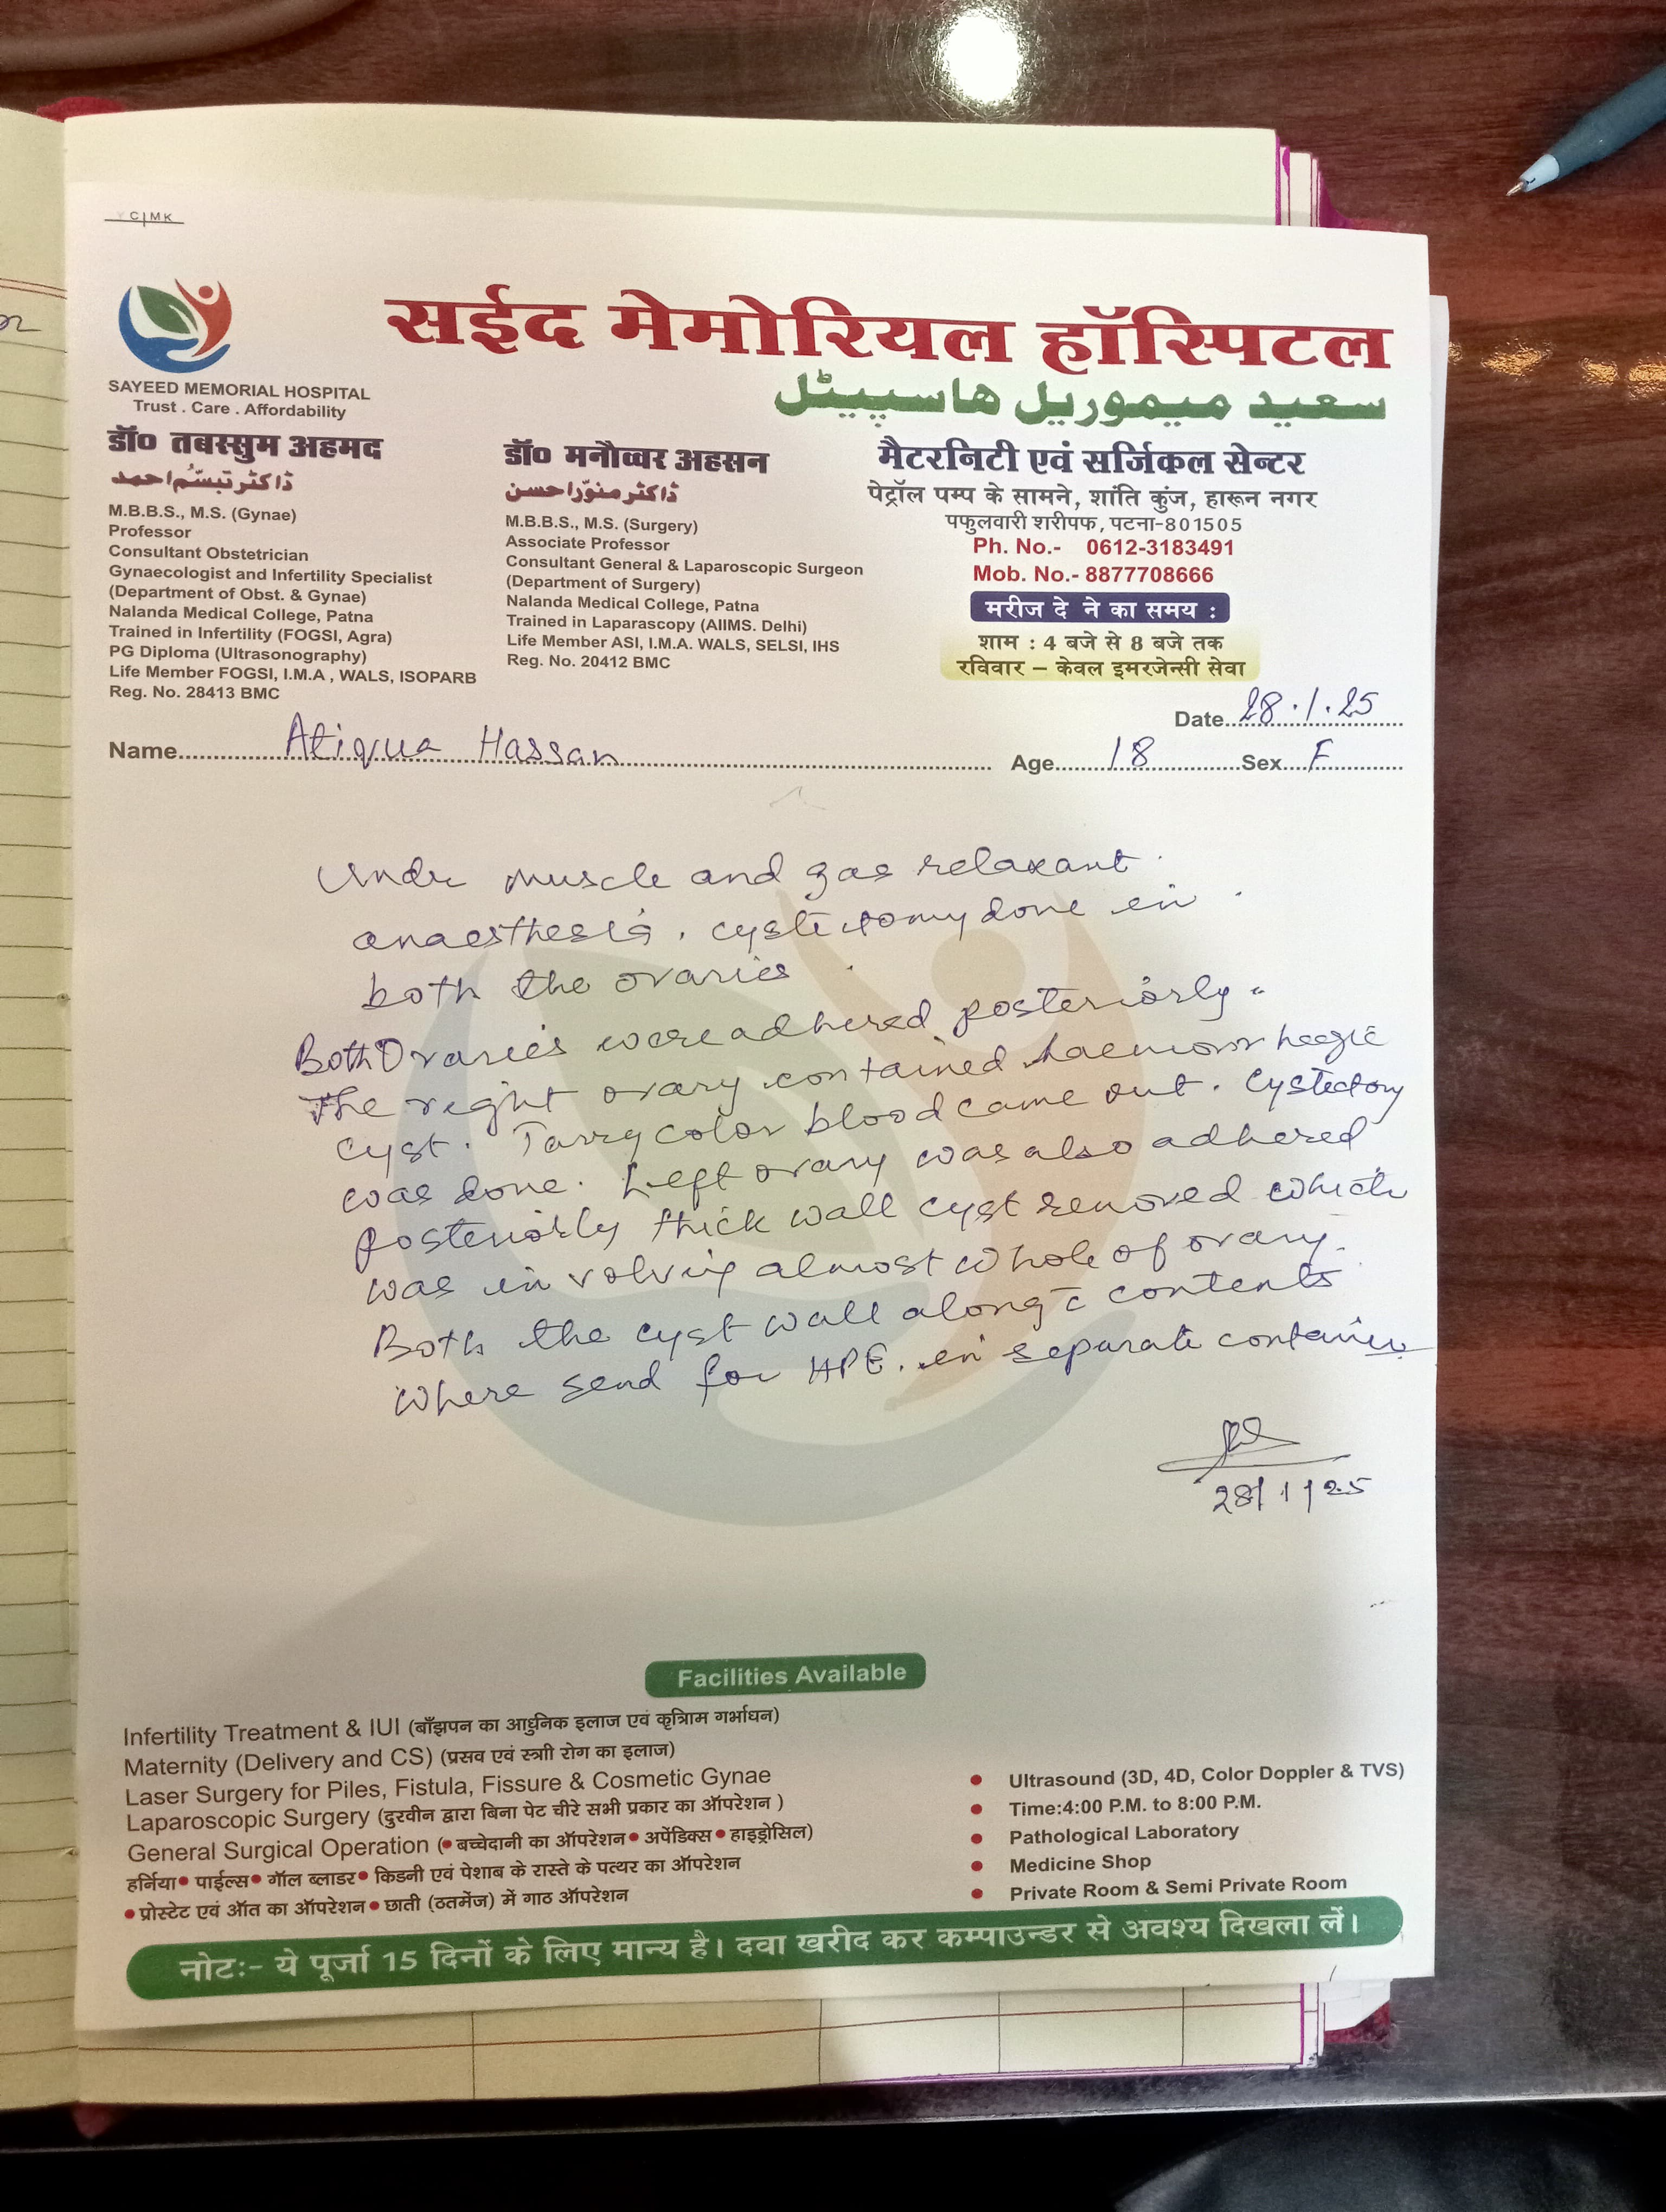 CMK
सईद मेमोरियल हॉस्पिटल
سعید میموریل ہاسپیٹل
SAYEED MEMORIAL HOSPITAL
Trust . Care . Affordability
डॉ० तबस्सुम अहमद
ڈاکٹر تبسّم احمد
M.B.B.S., M.S. (Gynae)
Professor
Consultant Obstetrician
Gynaecologist and Infertility Specialist
(Department of Obst. & Gynae)
Nalanda Medical College, Patna
Trained in Infertility (FOGSI, Agra)
PG Diploma (Ultrasonography)
Life Member FOGSI, I.M.A , WALS, ISOPARB
Reg. No. 28413 BMC
डॉ० मनौव्वर अहसन
ڈاکٹر منوّر احسن
M.B.B.S., M.S. (Surgery)
Associate Professor
Consultant General & Laparoscopic Surgeon
(Department of Surgery)
Nalanda Medical College, Patna
Trained in Laparascopy (AIIMS. Delhi)
Life Member ASI, I.M.A. WALS, SELSI, IHS
Reg. No. 20412 BMC
मैटरनिटी एवं सर्जिकल सेन्टर
पेट्रॉल पम्प के सामने, शांति कुंज, हारून नगर
पफुलवारी शरीपफ, पटना-801505
Ph. No.- 0612-3183491
Mob. No.- 8877708666
मरीज दे ने का समय :
शाम : 4 बजे से 8 बजे तक
रविवार – केवल इमरजेन्सी सेवा
Date 28.1.25
Name Atiqua Hassan Age 18 Sex F
Under muscle and gas relaxant
anaesthesia, cystectomy done in
both the ovaries
Both Ovaries were adhered posteriorly.
The right ovary contained haemorrhagic
cyst. Tarry color blood came out. Cystectomy
was done. Left ovary was also adhered
posteriorly thick wall cyst removed which
was involving almost whole of ovary.
Both the cyst wall along c̄ contents
where send for HPE. in separate container
28/1/25
Facilities Available
Infertility Treatment & IUI (बाँझपन का आधुनिक इलाज एवं कृत्रिाम गर्भाधन)
Maternity (Delivery and CS) (प्रसव एवं स्त्राी रोग का इलाज)
Laser Surgery for Piles, Fistula, Fissure & Cosmetic Gynae
Laparoscopic Surgery (दुरवीन द्वारा बिना पेट चीरे सभी प्रकार का ऑपरेशन )
General Surgical Operation (• बच्चेदानी का ऑपरेशन • अपेंडिक्स • हाइड्रोसिल)
हर्निया • पाईल्स • गॉल ब्लाडर • किडनी एवं पेशाब के रास्ते के पत्थर का ऑपरेशन
• प्रोस्टेट एवं ऑत का ऑपरेशन • छाती (ठतमेंज) में गाठ ऑपरेशन
• Ultrasound (3D, 4D, Color Doppler & TVS)
• Time:4:00 P.M. to 8:00 P.M.
• Pathological Laboratory
• Medicine Shop
• Private Room & Semi Private Room
नोटः- ये पूर्जा 15 दिनों के लिए मान्य है। दवा खरीद कर कम्पाउन्डर से अवश्य दिखला लें।